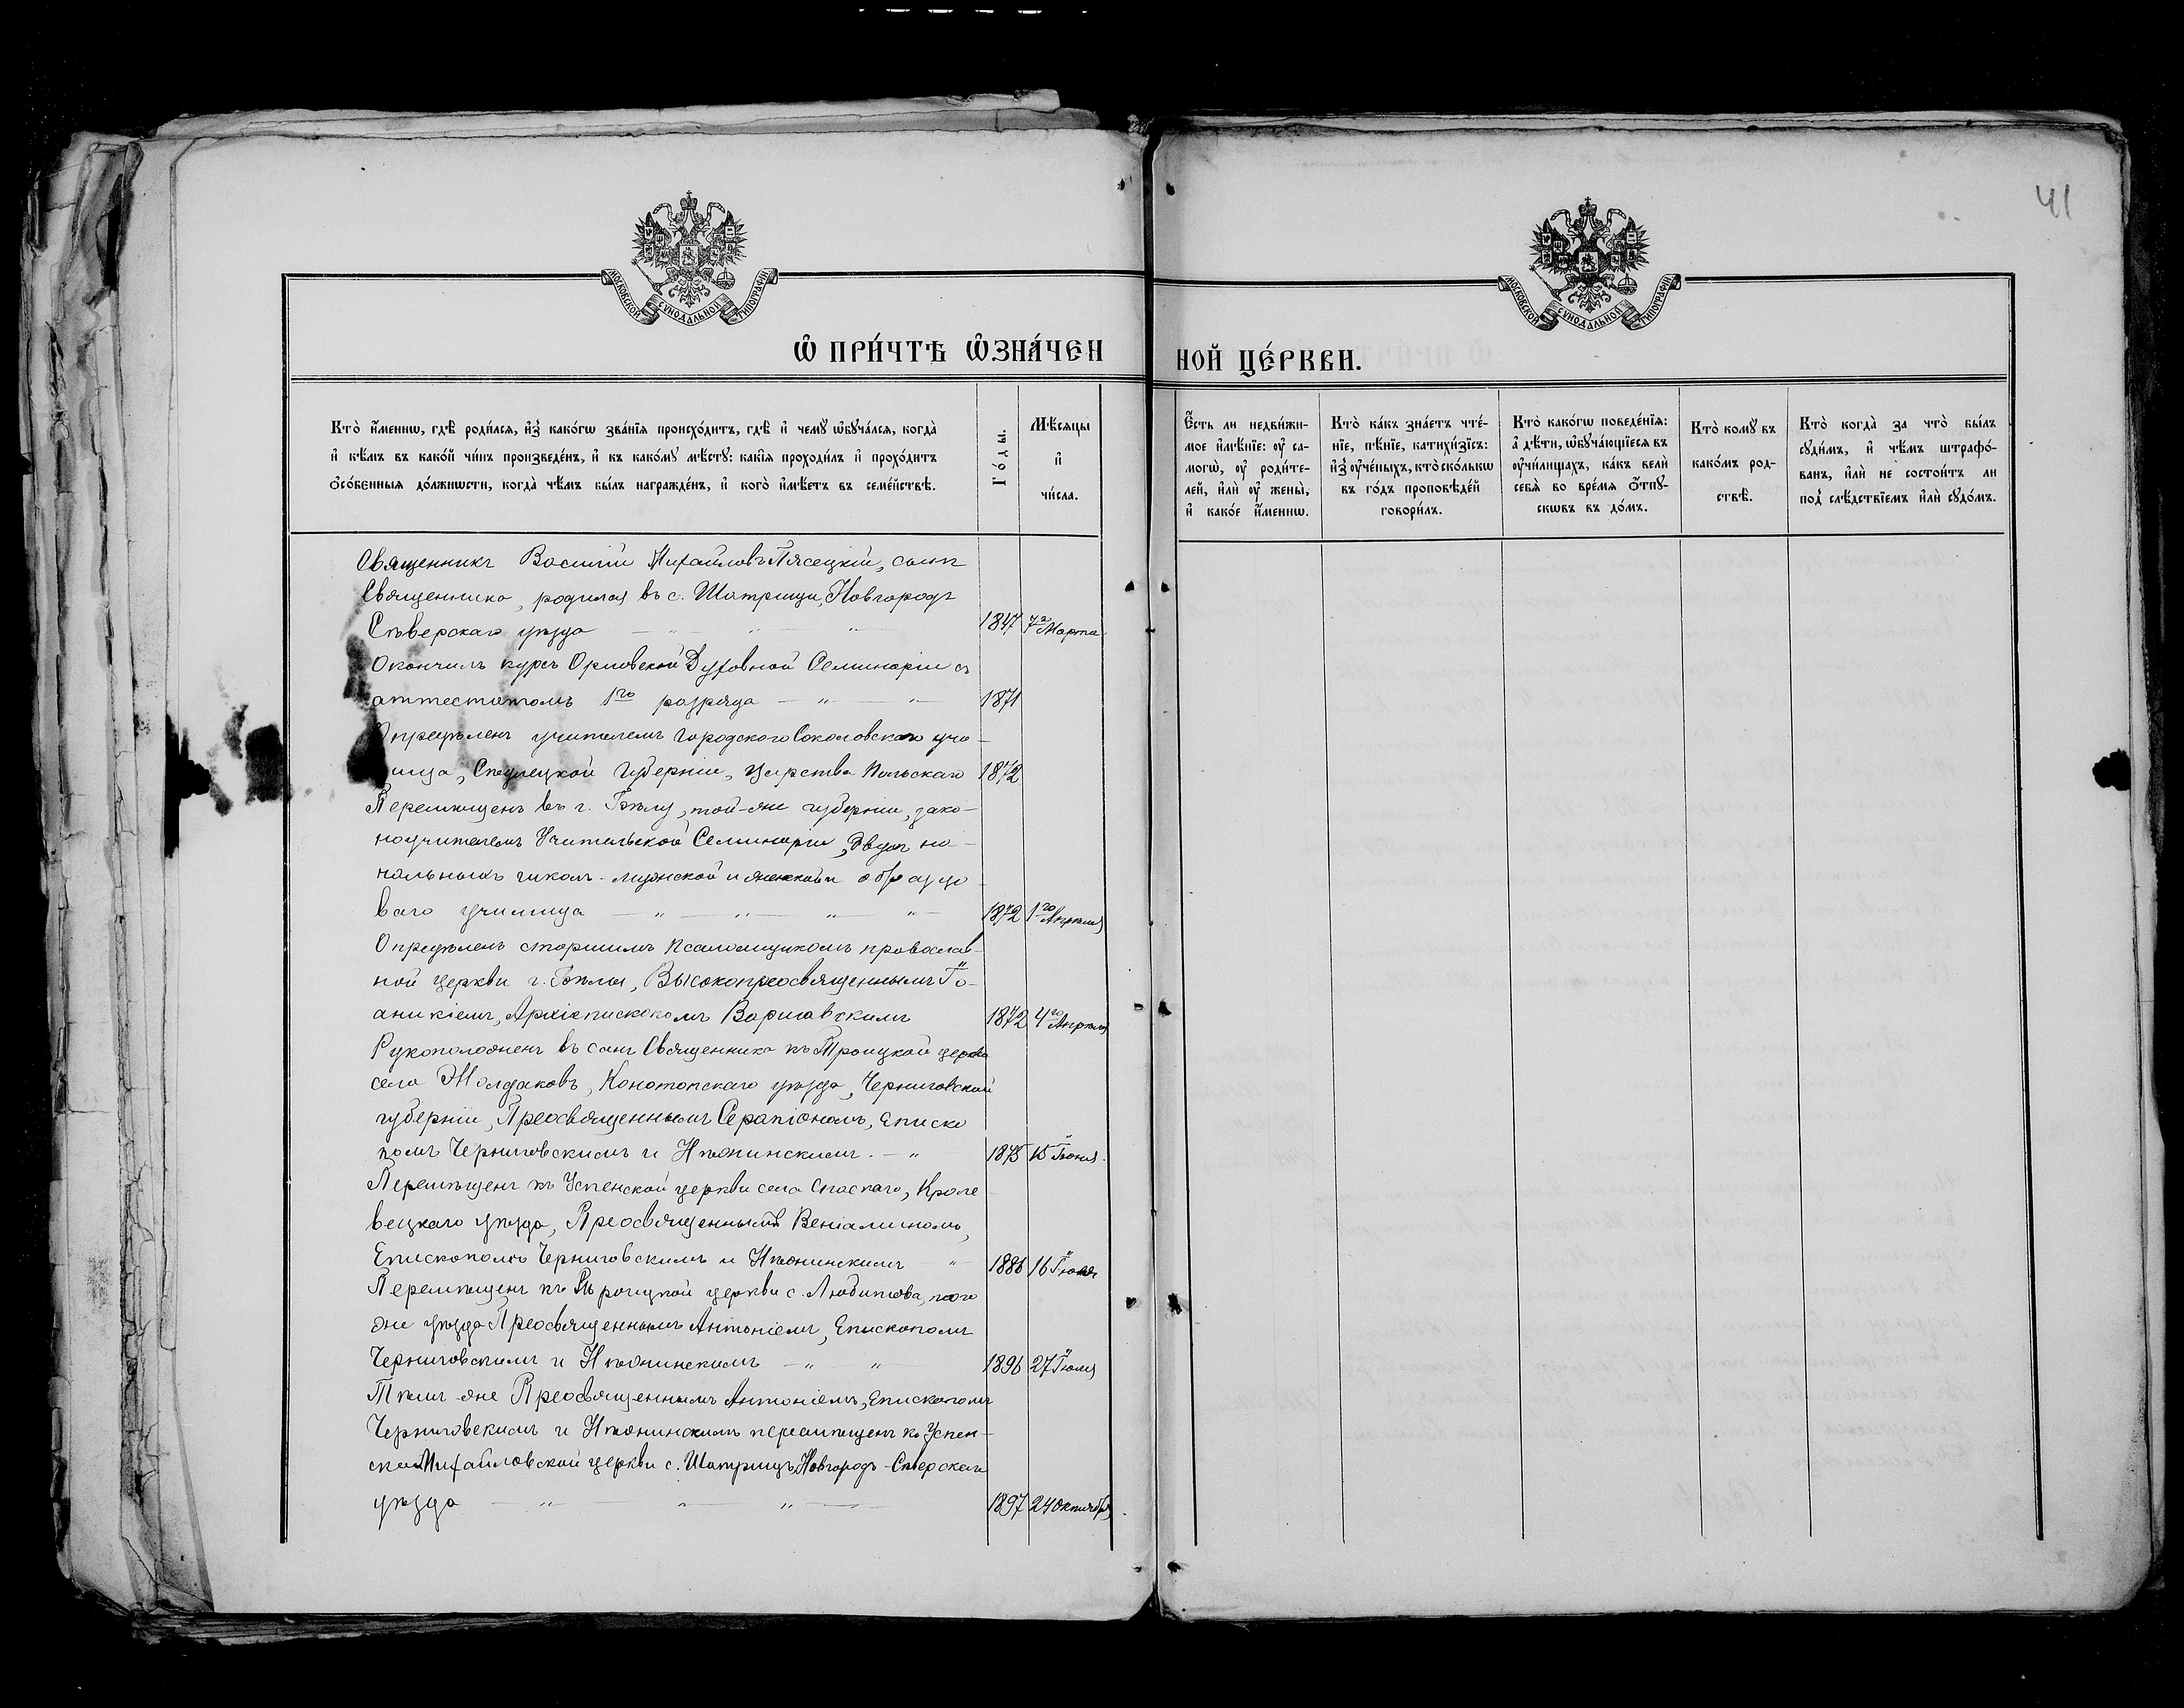 41
МОСКОВСКОЙ СѴНОДАЛЬНОЙ ТИПОГРАФІИ
МОСКОВСКОЙ СѴНОДАЛЬНОЙ ТИПОГРАФІИ
Ѡ҆ ПРИ́ЧТѢ Ѡ҆ЗНА́ЧЕННОЙ ЦЕ́РКВИ.
Кто̀ и҆́меннѡ, гдѣ̀ роди́лсѧ, и҆з̾ како́гѡ зва́нїѧ происхо́дитъ, гдѣ̀ и҆ чемꙋ̀ ѡ҆бꙋча́лсѧ, когда̀
и҆ кѣ́мъ въ како́й чи́нъ произведе́нъ, и҆ къ како́мꙋ мѣ́стꙋ: каки̑ѧ проходи́лъ и҆ прохо́дитъ
ѻ҆со́бенныѧ до́лжнѡсти, когда̀ чѣ́мъ бы́лъ награжде́нъ, и҆ кого̀ и҆мѣ́етъ въ семе́йствѣ.
Го́ды.
Мѣ́сѧцы
и҆
чи́сла.
Є҆́сть ли недви́жи-
мое и҆мѣ́нїе: ᲂу҆ са-
могѡ̀, ᲂу҆ роди́те-
лей, и҆лѝ ᲂу҆ жены̀,
и҆ како́е и҆́меннѡ.
Кто̀ ка́къ зна́етъ чте́-
нїе, пѣ́нїе, катихи́зїсъ:
и҆з̾ ᲂу҆че́ныхъ, кто̀ ско́лькѡ
въ го́дъ проповѣ́дей
говори́лъ.
Кто̀ како́гѡ поведе́нїѧ:
а҆ дѣ́ти, ѡ҆бꙋча́ющїесѧ въ
ᲂу҆чи́лищахъ, ка́къ велѝ
себѧ̀ во вре́мѧ ѿпꙋ-
скѡвъ въ до́мъ.
Кто̀ комꙋ̀ въ
како́мъ род-
ствѣ̀.
Кто̀ когда̀ за что̀ бы́лъ
сꙋди́мъ, и҆ чѣ́мъ штрафо́-
ванъ, и҆лѝ не состои́тъ ли
под̾ слѣ́дствїемъ и҆лѝ сꙋдо́мъ.
Священникъ Василій Михайловъ Пясецкій, сынъ
Священника, родился въ с. Шатрищи, Новгородъ
Сѣверскаго уѣзда — " — " — " 1847 7го Марта.
Окончилъ курсъ Орловской Духовной Семинаріи съ
аттестатомъ 1го разряда — " — " — 1871
Опредѣленъ учителемъ Городского Соколовскаго учи-
лища, Сѣдлецкой Губерніи, Царства Польскаго 1872
Перемѣщенъ въ г. Бѣлу, той-же губерніи, зако-
ноучителемъ Учительской Семинаріи, двухъ на-
чальныхъ школъ - мужской и женской и образцо-
ваго училища — " — " — " — " — 1872 1го Апрѣля
Опредѣленъ старшимъ псаломщикомъ православ-
ной церкви г. Бѣлы, Высокопреосвященнымъ Іо-
аникіемъ, Архіепископомъ Варшавскимъ 1872 4го Апрѣля
Рукоположенъ въ санъ Священника къ Троицкой церкви
села Жолдаковъ, Конотопскаго уѣзда, Черниговской
губерніи, Преосвященнымъ Серапіономъ, Еписко
помъ Черниговскимъ и Нѣжинскимъ. — " 1875 15 Іюня.
Перемѣщенъ къ Успенской церкви села Спаскаго, Кроле
вецкаго уѣзда, Преосвященнымъ Веніаминомъ,
Епископомъ Черниговскимъ и Нѣжинскимъ — " 1886 16
Перемѣщенъ къ Троицкой церкви с. Любитова, того
же уѣзда Преосвященнымъ Антоніемъ, Епископомъ
Черниговскимъ и Нѣжинскимъ — " " 1896 27 Іюля
Тѣмъ же Преосвященнымъ Антоніемъ, Епископомъ
Черниговскимъ и Нѣжинскимъ перемѣщенъ къ Успен-
ско Михайловской церкви с. Шатрищъ, Новгородъ-Сѣверскаго
уѣзда — " — " — " — 1897 24 Октября.